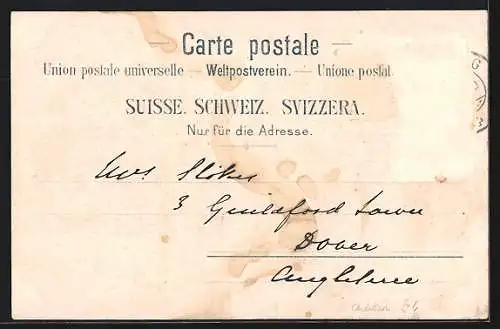 Carte postale
Union postale universelle — Weltpostverein. — Unione postal
SUISSE. SCHWEIZ. SVIZZERA.
Nur für die Adresse.
Mrs Stokes
3 Guildford Lawn
Dover
Angleterre